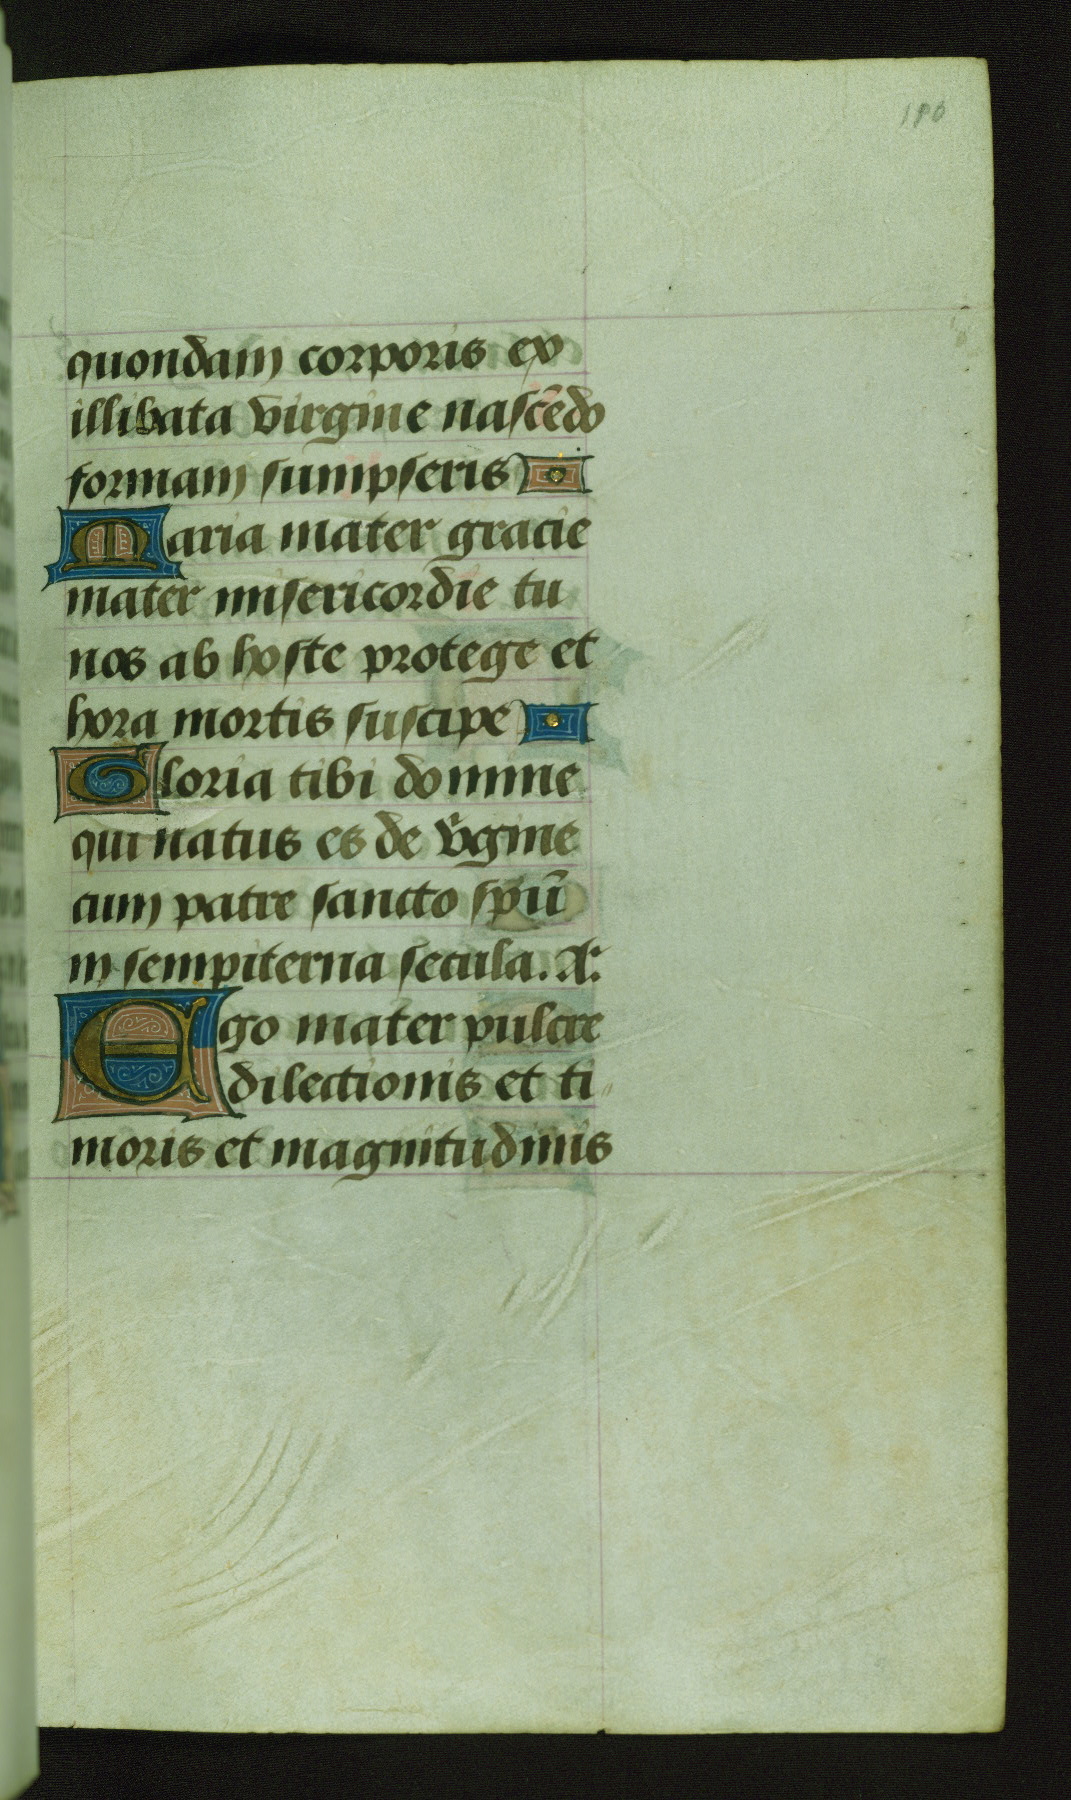 quondam corporis ex
illibata virgine nascẽdo
formam sumpseris
Maria mater gracie
mater misericordie tu
nos ab hoste protege et
hora mortis suscipe
Gloria tibi domine
qui natus es de v̾gine
cum patre sancto spũ
in sempiterna secula. A:
Ego mater pulcre
dilectionis et ti
moris et magnitudinis